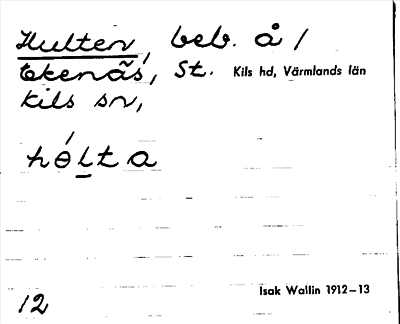 Hulten, beb. å /
Ekenäs, St. Kils hd, Värmlands län
Kils sn,
hɵ́l̲ta
12
Isak Wallin 1912–13